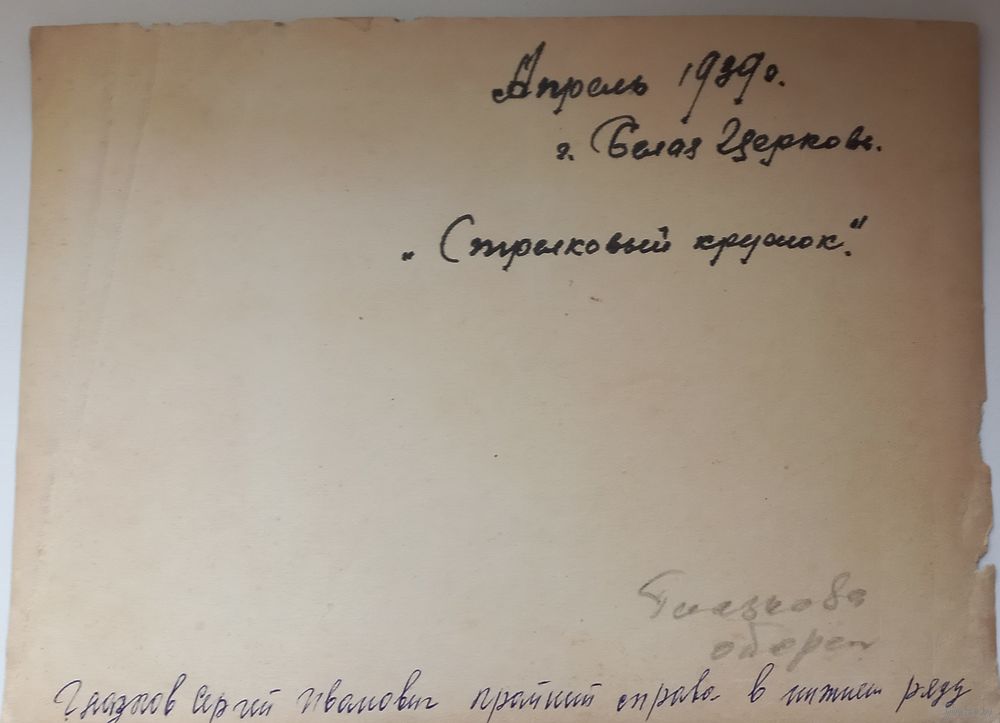 Апрель 1939 г.
г. Белая Церковь.
„Стрелковый кружок."
Глазкова
Глазков Сергий Иванович крайний справа в нижнем ряду